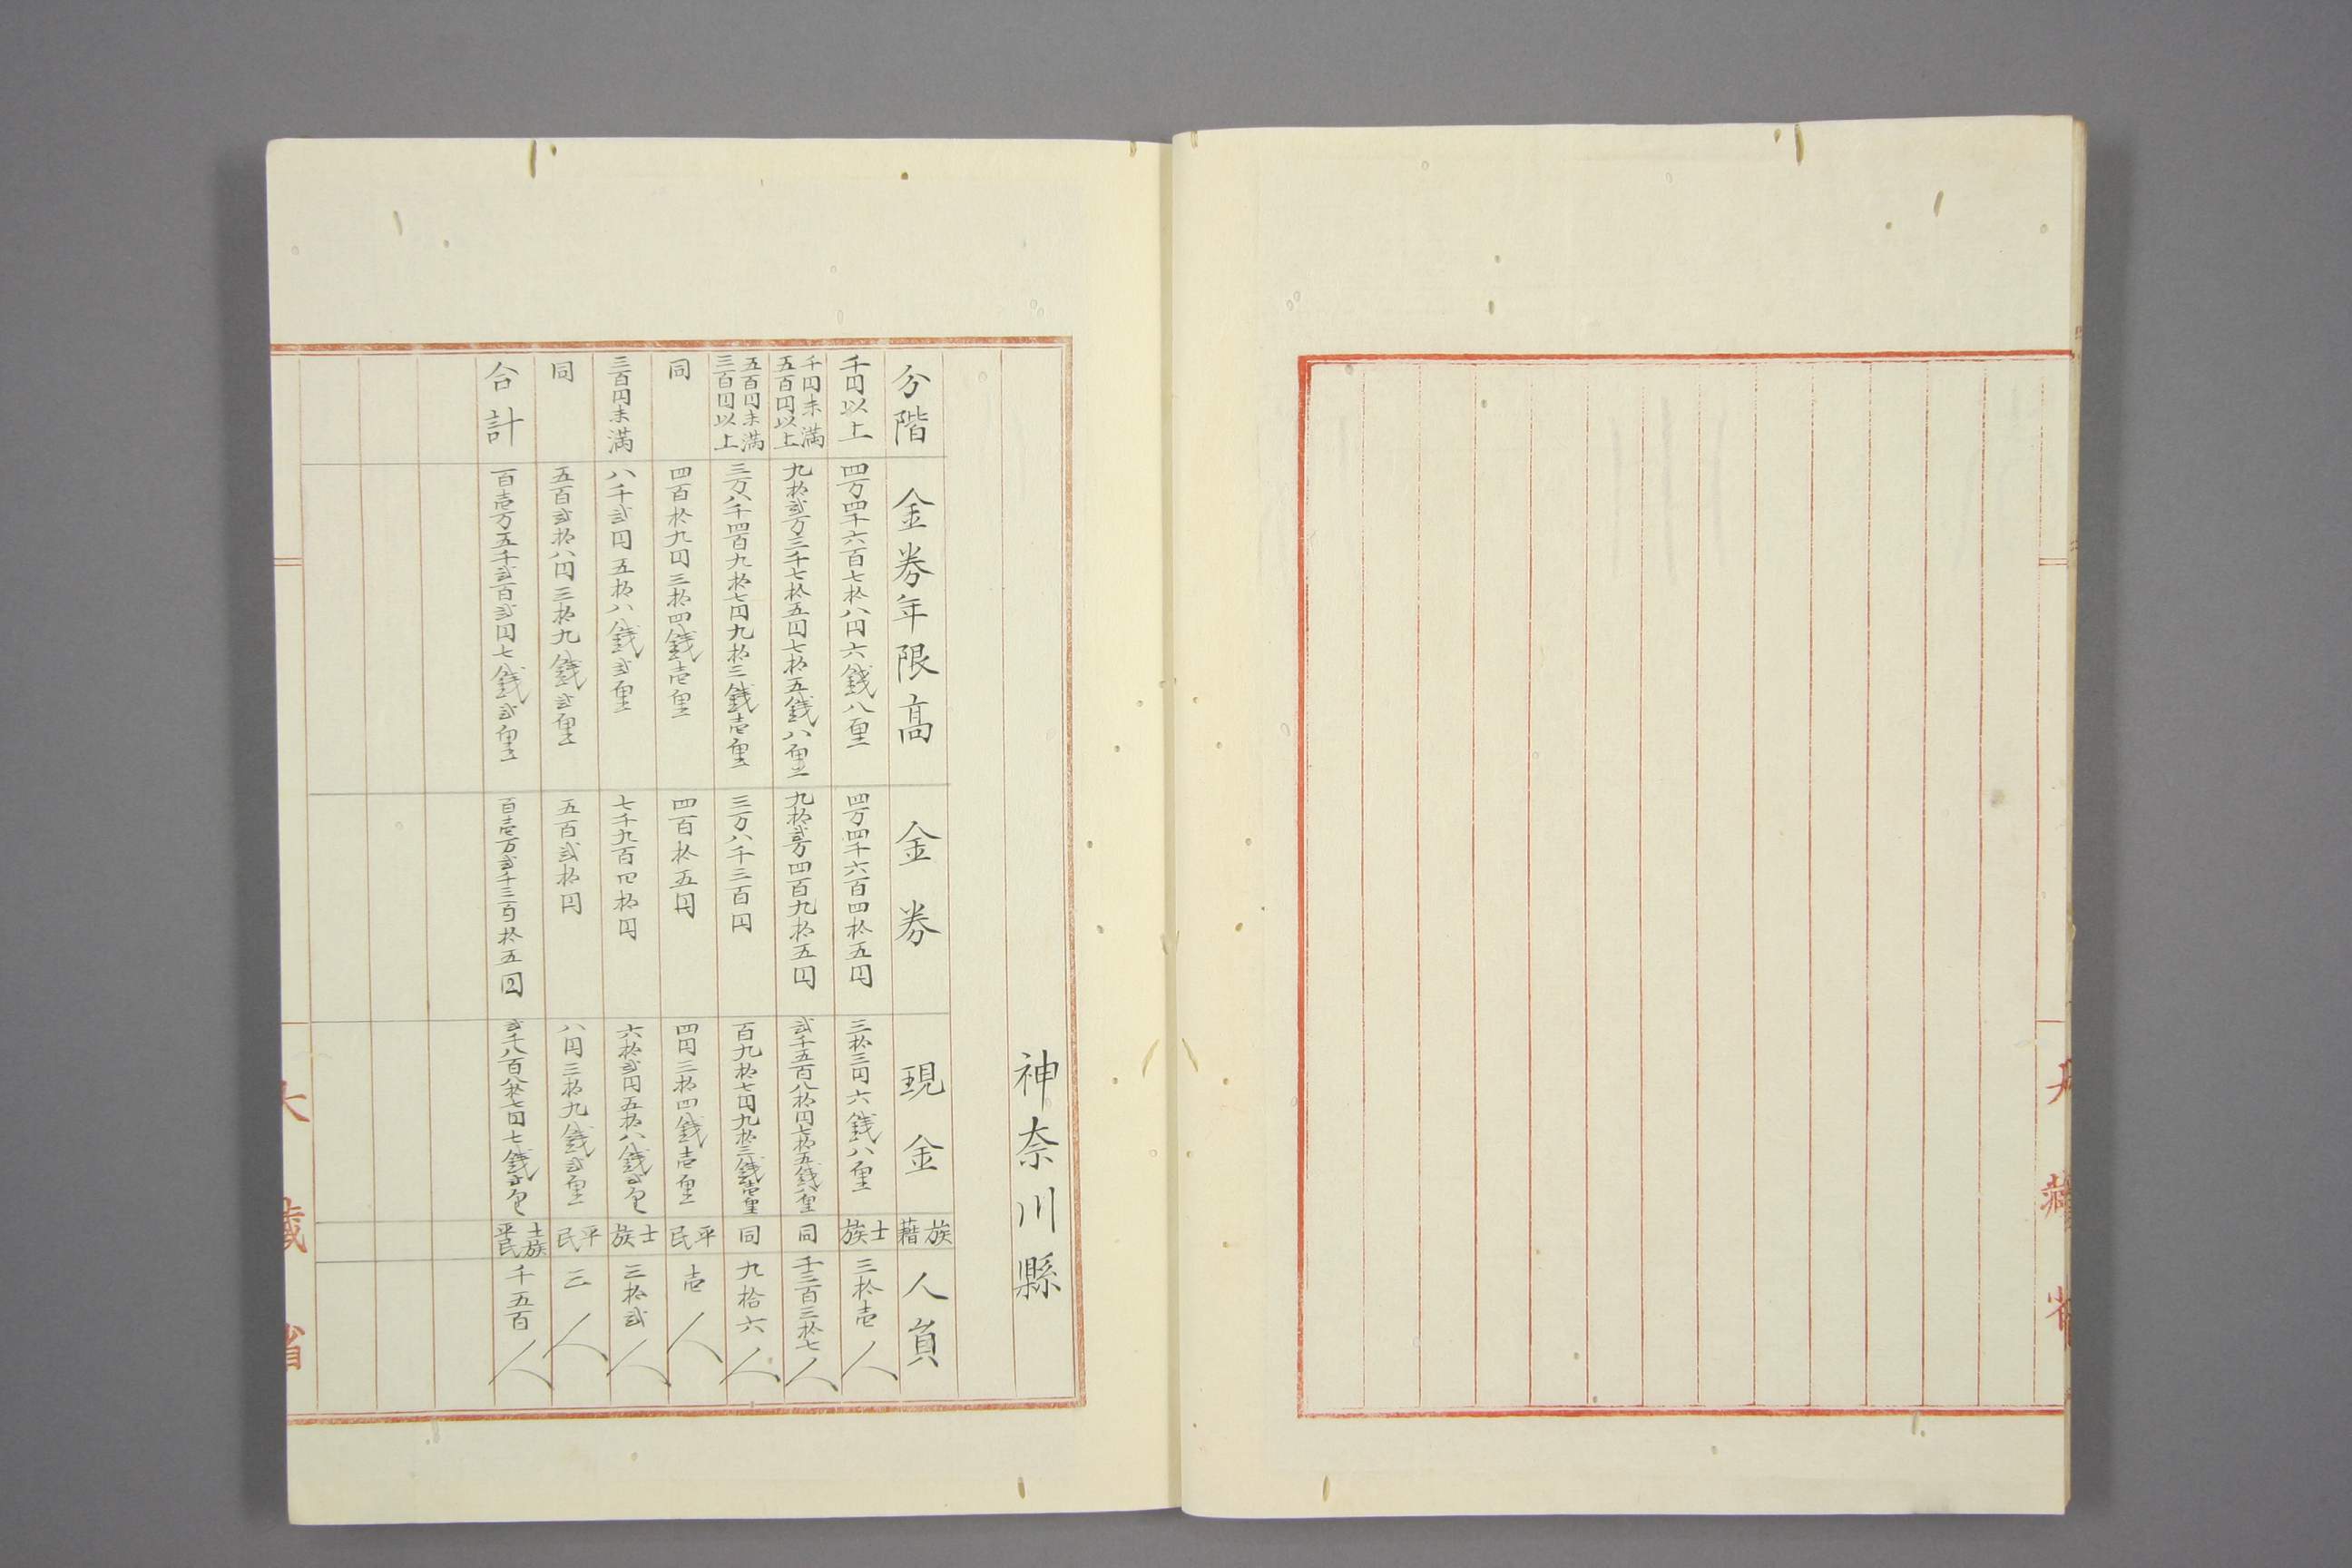 大藏省
神奈川縣
分階 金券年限高 金券 現金 族籍 人員
千円以上 四万四千六百七拾八円六銭八厘 四万四千六百四拾五円 三拾三円六銭八厘 士族 三拾壱人
千円未満五百円以上 九拾弐万三千七拾五円七拾五銭八厘 九拾弐万四百九拾五円 弐千五百八拾円七拾五銭八厘 同 千三百三拾七人
五百円未満三百円以上 三万八千四百九拾七円九拾三銭壱厘 三万八千三百円 百九拾七円九拾三銭壱厘 同 九拾六人
同 四百拾九円三拾四銭壱厘 四百拾五円 四円三拾四銭壱厘 平民 壱人
三百円未満 八千弐円五拾八銭弐厘 七千九百四拾円 六拾弐円五拾八銭弐厘 士族 三拾弐人
同 五百弐拾八円三拾九銭弐厘 五百弐拾円 八円三拾九銭弐厘 平民 三人
合計 百壱万五千弐百弐円七銭弐厘 百壱万弐千三百拾五円 弐千八百八拾七円七銭弐厘 士族平民 千五百人
大藏省